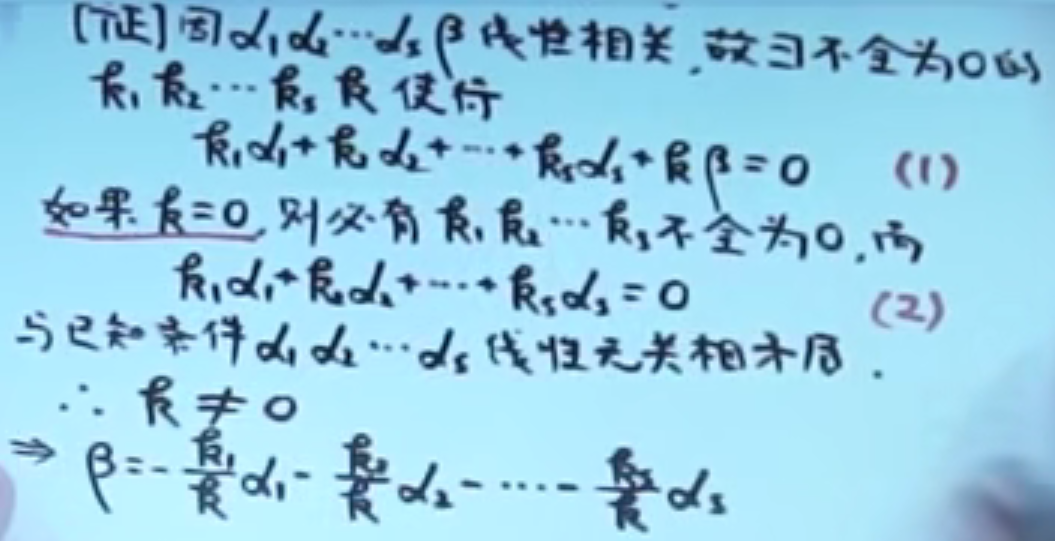 [证]因α₁α₂⋯αₛβ线性相关,故∃不全为0的
k₁k₂⋯kₛk使得
k₁α₁+k₂α₂+⋯+kₛαₛ+kβ=0 (1)
如果k=0,则必有k₁k₂⋯kₛ不全为0,而
k₁α₁+k₂α₂+⋯+kₛαₛ=0 (2)
与已知条件α₁α₂⋯αₛ线性无关相矛盾.
∴k≠0
⇒β=-k₁/kα₁-k₂/kα₂-⋯-kₛ/kαₛ